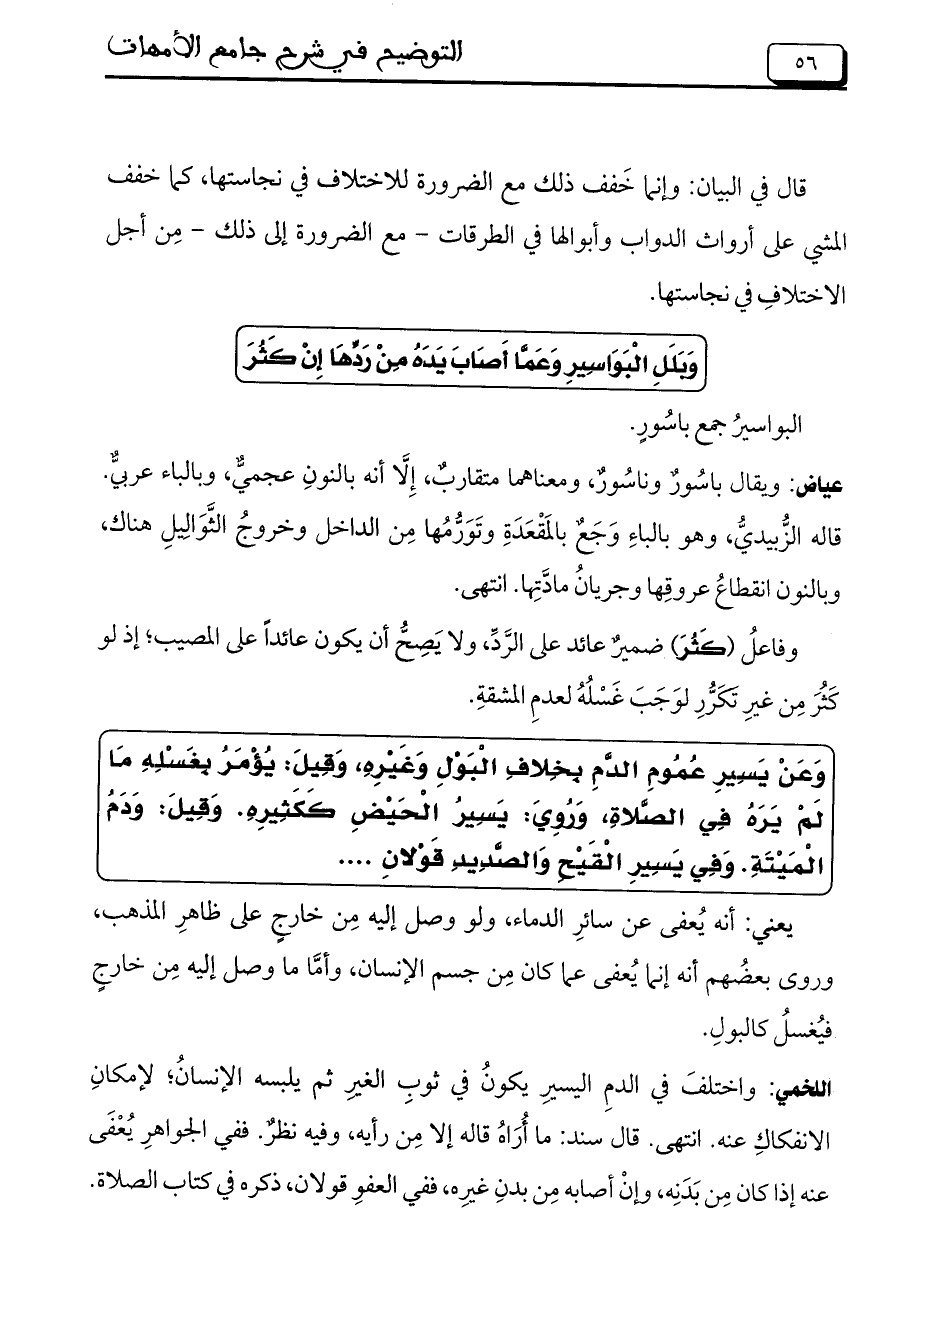 التوضيح في شرح جامع الأمهات
٥٦
قال في البيان: وإنما خَفف ذلك مع الضرورة للاختلاف في نجاستها، كما خفف
المشي على أرواث الدواب وأبوالها في الطرقات – مع الضرورة إلى ذلك – مِن أجل
الاختلافِ في نجاستها.
وَبَلَلِ الْبَوَاسِيرِ وَعَمَّا أَصَابَ يَدَهُ مِنْ رَدِّهَا إِنْ كَثُرَ
البواسيرُ جمع باسُورٍ.
عياض: ويقال باسُورٌ وناسُورٌ، ومعناهما متقاربٌ، إِلَّا أنه بالنونِ عجميٌّ، وبالباء عربيٌّ.
قاله الزُّبيديُّ، وهو بالباءِ وَجَعٌ بالمَقْعَدَةِ وتَوَرُّمُها مِن الداخل وخروجُ الثَّوَالِيلِ هناك،
وبالنون انقطاعُ عروقِها وجريانُ مادَّتِها. انتهى.
وفاعلُ (كَثُرَ) ضميرٌ عائد على الرَّدِّ، ولا يَصِحُّ أن يكون عائداً على المصيب؛ إذ لو
كَثُرَ مِن غيرِ تَكَرُّرٍ لوَجَبَ غَسْلُهُ لعدمِ المشقةِ.
وَعَنْ يَسِيرِ عُمُومِ الدَّمِ بِخِلافِ الْبَوْلِ وَغَيْرِهِ، وَقِيلَ: يُؤْمَرُ بِغَسْلِهِ مَا
لَمْ يَرَهُ فِي الصَّلَاةِ، وَرُوِيَ: يَسِيرُ الْحَيْضِ كَكَثِيرِهِ. وَقِيلَ: وَدَمُ
الْمَيْتَةِ. وَفِي يَسِيرِ الْقَيْحِ وَالصَّدِيدِ قَوْلانِ ....
يعني: أنه يُعفى عن سائرِ الدماء، ولو وصل إليه مِن خارجٍ على ظاهرِ المذهب،
وروى بعضُهم أنه إنما يُعفى عما كان مِن جسم الإنسان، وأمَّا ما وصل إليه مِن خارجٍ
فيُغسلُ كالبولِ.
اللخمي: واختلفَ في الدمِ اليسيرِ يكونُ في ثوبِ الغيرِ ثم يلبسه الإنسانُ؛ لإمكانِ
الانفكاكِ عنه. انتهى. قال سند: ما أُرَاهُ قاله إلا مِن رأيه، وفيه نظرٌ. ففي الجواهرِ يُعْفَى
عنه إذا كان مِن بَدَنِه، وإنْ أصابه مِن بدنِ غيرِه، ففي العفوِ قولان، ذكره في كتاب الصلاة.